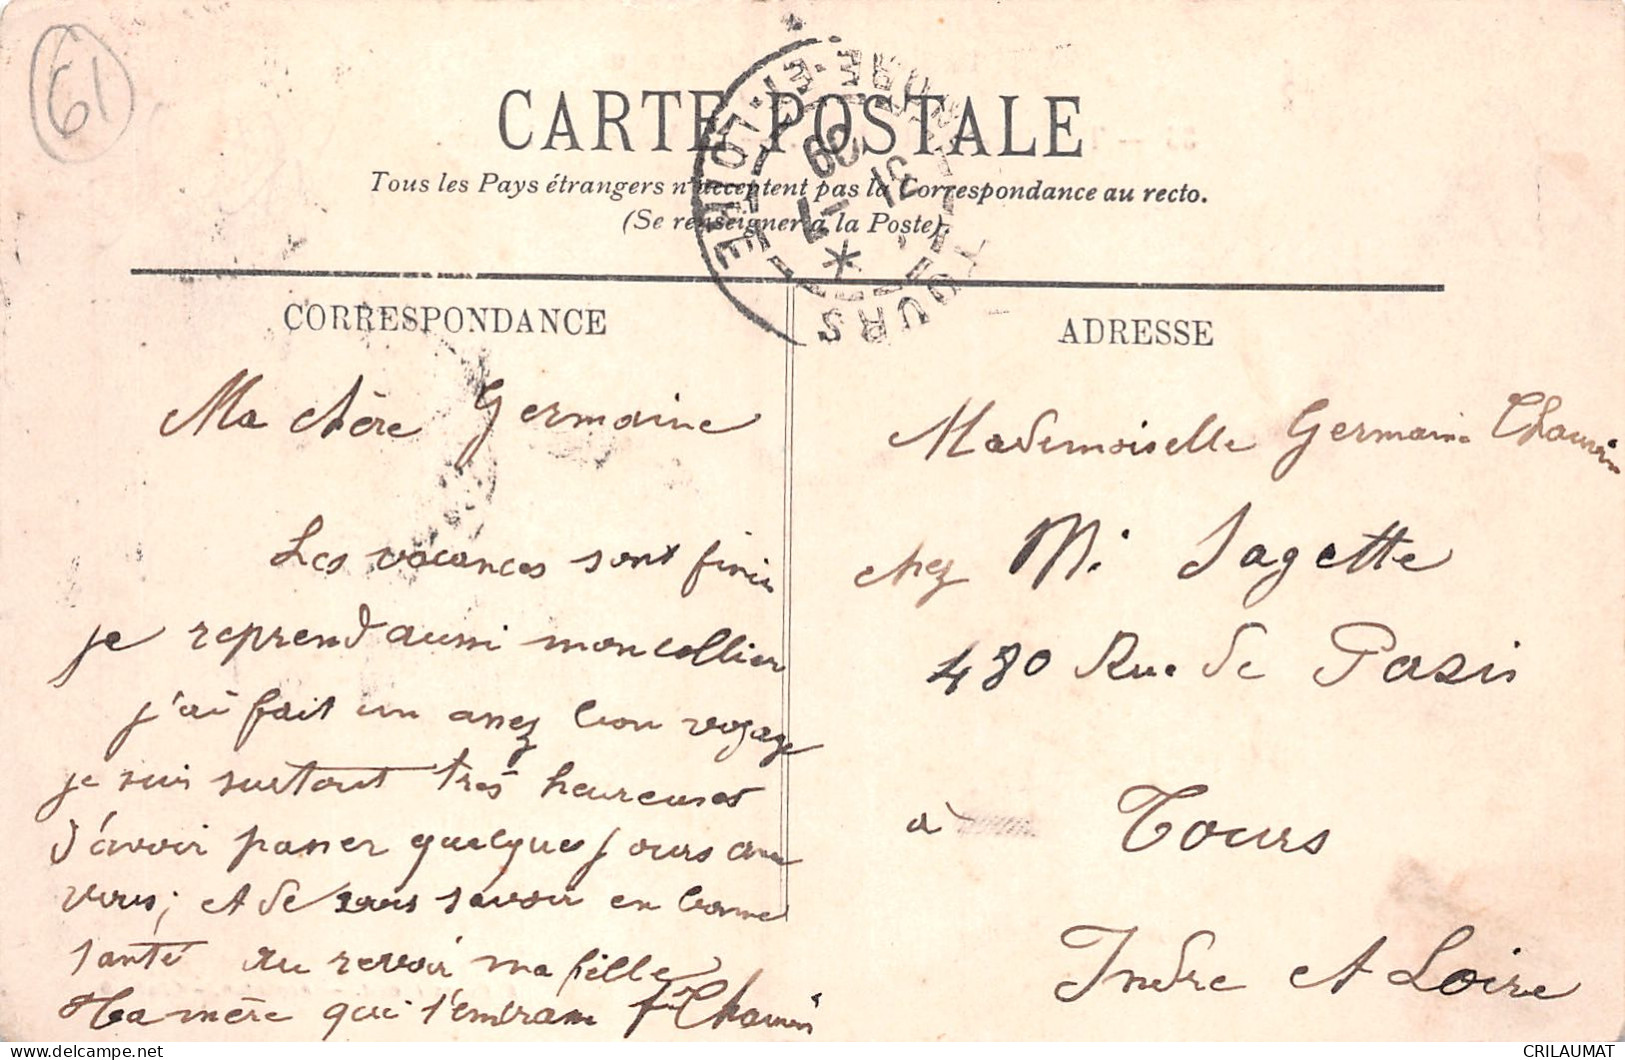 61
CARTE POSTALE
Tous les Pays étrangers n'acceptent pas la Correspondance au recto.
(Se renseigner à la Poste).
TOURS INDRE-ET-LOIRE
31 -7 09
CORRESPONDANCE
Ma chère Germaine
Les vacances sont finis
je reprend aussi mon collier
j'ai fait un assez bon voyage
je suis surtout très heureuses
d'avoir passer quelques jours avec
vous; et de vous savoir en bonne
santé au revoir ma fille
Ta mère qui t'embrasse
ADRESSE
Mademoiselle Germaine
chez M. Sagette
480 Rue de Paris
à Tours
Indre et Loire
CRILAUMAT